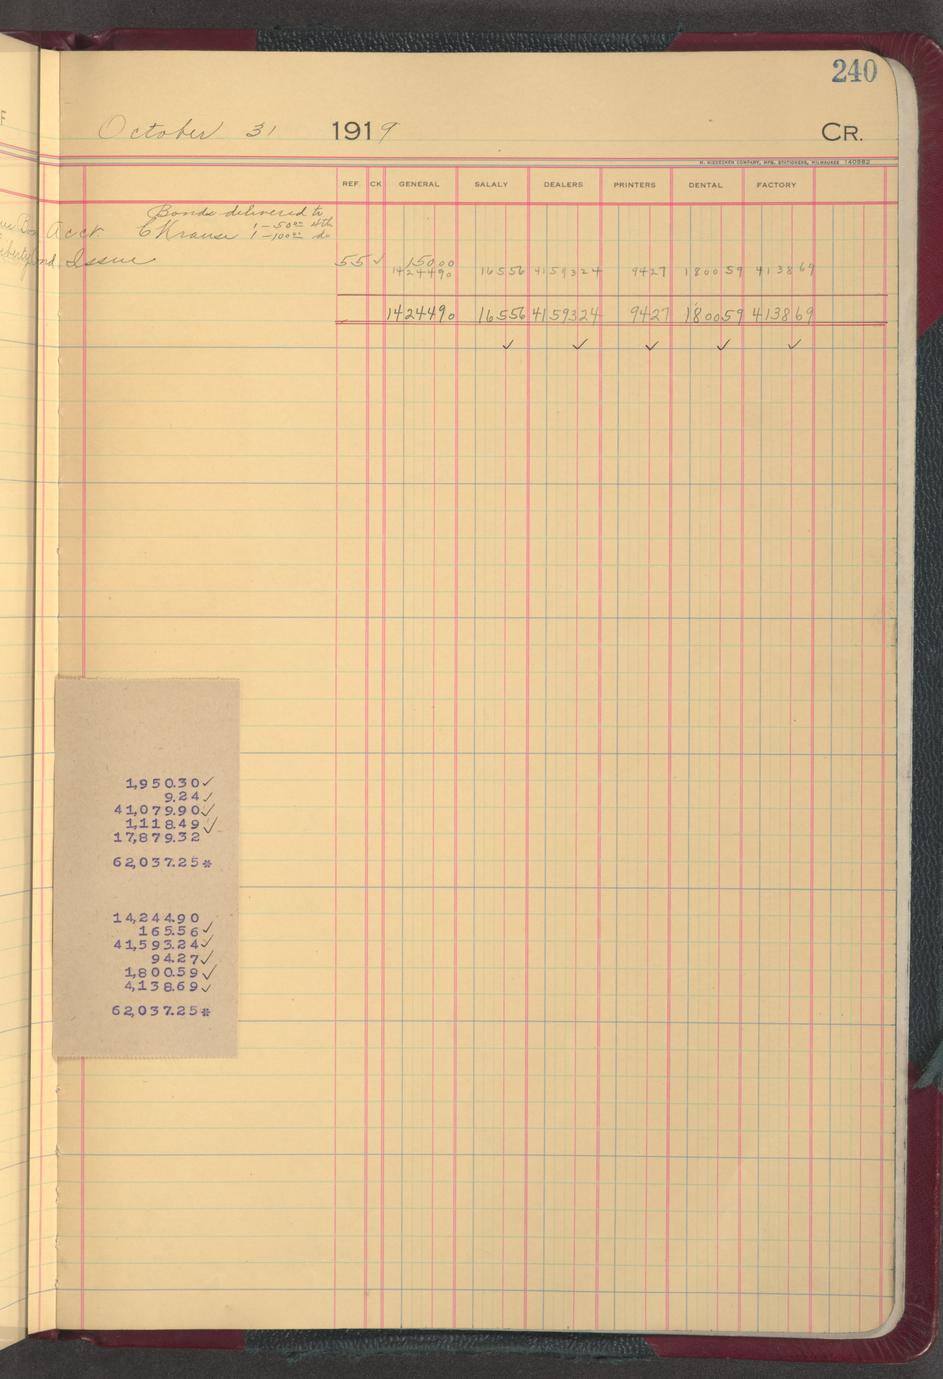 240
October 31 1919 CR.
H. NIEDECKEN COMPANY, MFG. STATIONERS, MILWAUKEE 140882
REF. CK GENERAL SALALY DEALERS PRINTERS DENTAL FACTORY
Bonds delivered to
Acct. C Krause 1-50⁰⁰ 4th
1-100⁰⁰ do
Issue 55 ✓ 150 00
14244 90 165 56 41593 24 94 27 1800 59 4138 69
14244 90 165 56 41593 24 94 27 1800 59 4138 69
✓ ✓ ✓ ✓ ✓
1,950.30 ✓
9.24 ✓
41,079.90 ✓
1,118.49 ✓
17,879.32
62,037.25 *
14,244.90
165.56 ✓
41,593.24 ✓
94.27 ✓
1,800.59 ✓
4,138.69 ✓
62,037.25 *